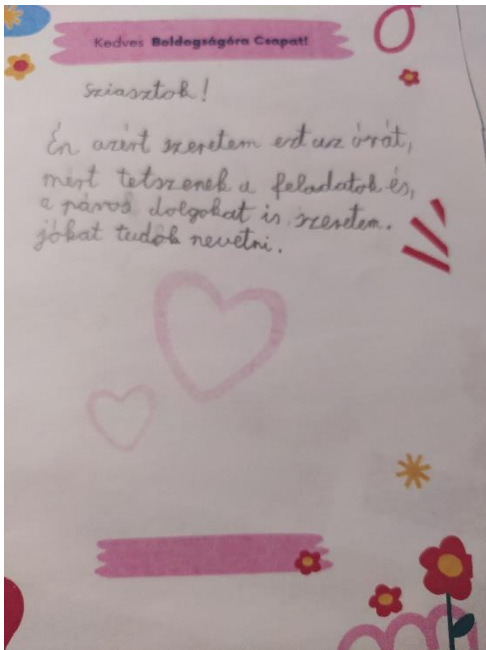 Kedves Boldogságóra Csapat!
Sziasztok!
Én azért szeretem ezt az órát,
mert tetszenek a feladatok és,
a páros dolgokat is szeretem.
jókat tudok nevetni.